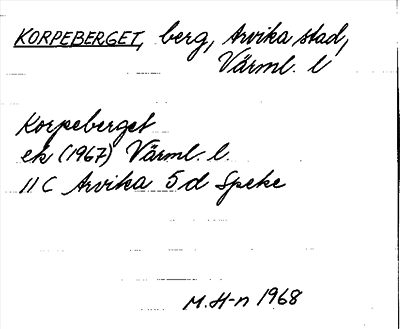 KORPEBERGET, berg, Arvika stad,
Värml. l
Korpeberget
ek (1967) Värml. l.
11 C Arvika 5 d Speke
M. H-n 1968